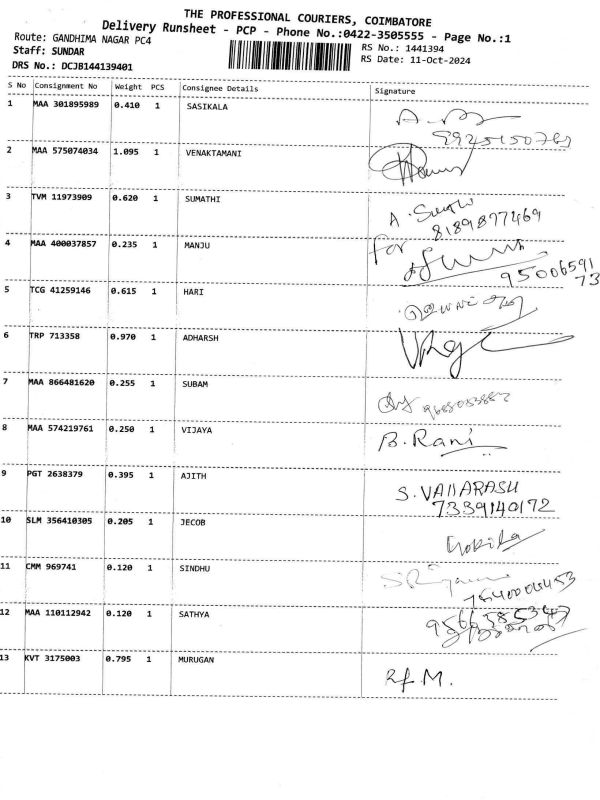 THE PROFESSIONAL COURIERS, COIMBATORE
Delivery Runsheet - PCP - Phone No.:0422-3505555 - Page No.:1
Route: GANDHIMA NAGAR PC4
RS No.: 1441394
Staff: SUNDAR
RS Date: 11-Oct-2024
DRS No.: DCJB144139401
S No Consignment No Weight PCS Consignee Details Signature
1 MAA 301895989 0.410 1 SASIKALA
2 MAA 575074034 1.095 1 VENAKTAMANI
3 TVM 11973909 0.620 1 SUMATHI
8189877469
4 MAA 400037857 0.235 1 MANJU for
95006591
73
5 TCG 41259146 0.615 1 HARI
6 TRP 713358 0.970 1 ADHARSH
7 MAA 866481620 0.255 1 SUBAM
8 MAA 574219761 0.250 1 VIJAYA B. Rani
9 PGT 2638379 0.395 1 AJITH S. VANARASU
7339140172
10 SLM 356410305 0.205 1 JECOB
11 CMM 969741 0.120 1 SINDHU
12 MAA 110112942 0.120 1 SATHYA
13 KVT 3175003 0.795 1 MURUGAN